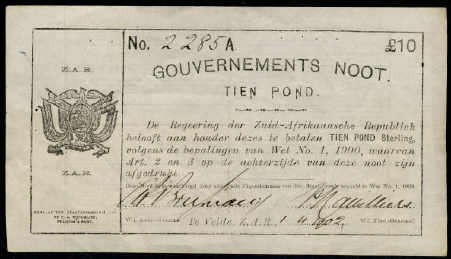 No. 2285A
£10
GOUVERNEMENTS NOOT.
TIEN POND.
Z. A. R.
De Regeering der Zuid-Afrikaansche Republiek
belooft aan houder dezes te betalen TIEN POND Sterling,
volgens de bepalingen van Wet No. 1, 1900, waarvan
Art. 2 en 3 op de achterzijde van deze noot zijn
afgedrukt.
Z. A. R.
Te Velde, Z.A.R. 1 4 1902.